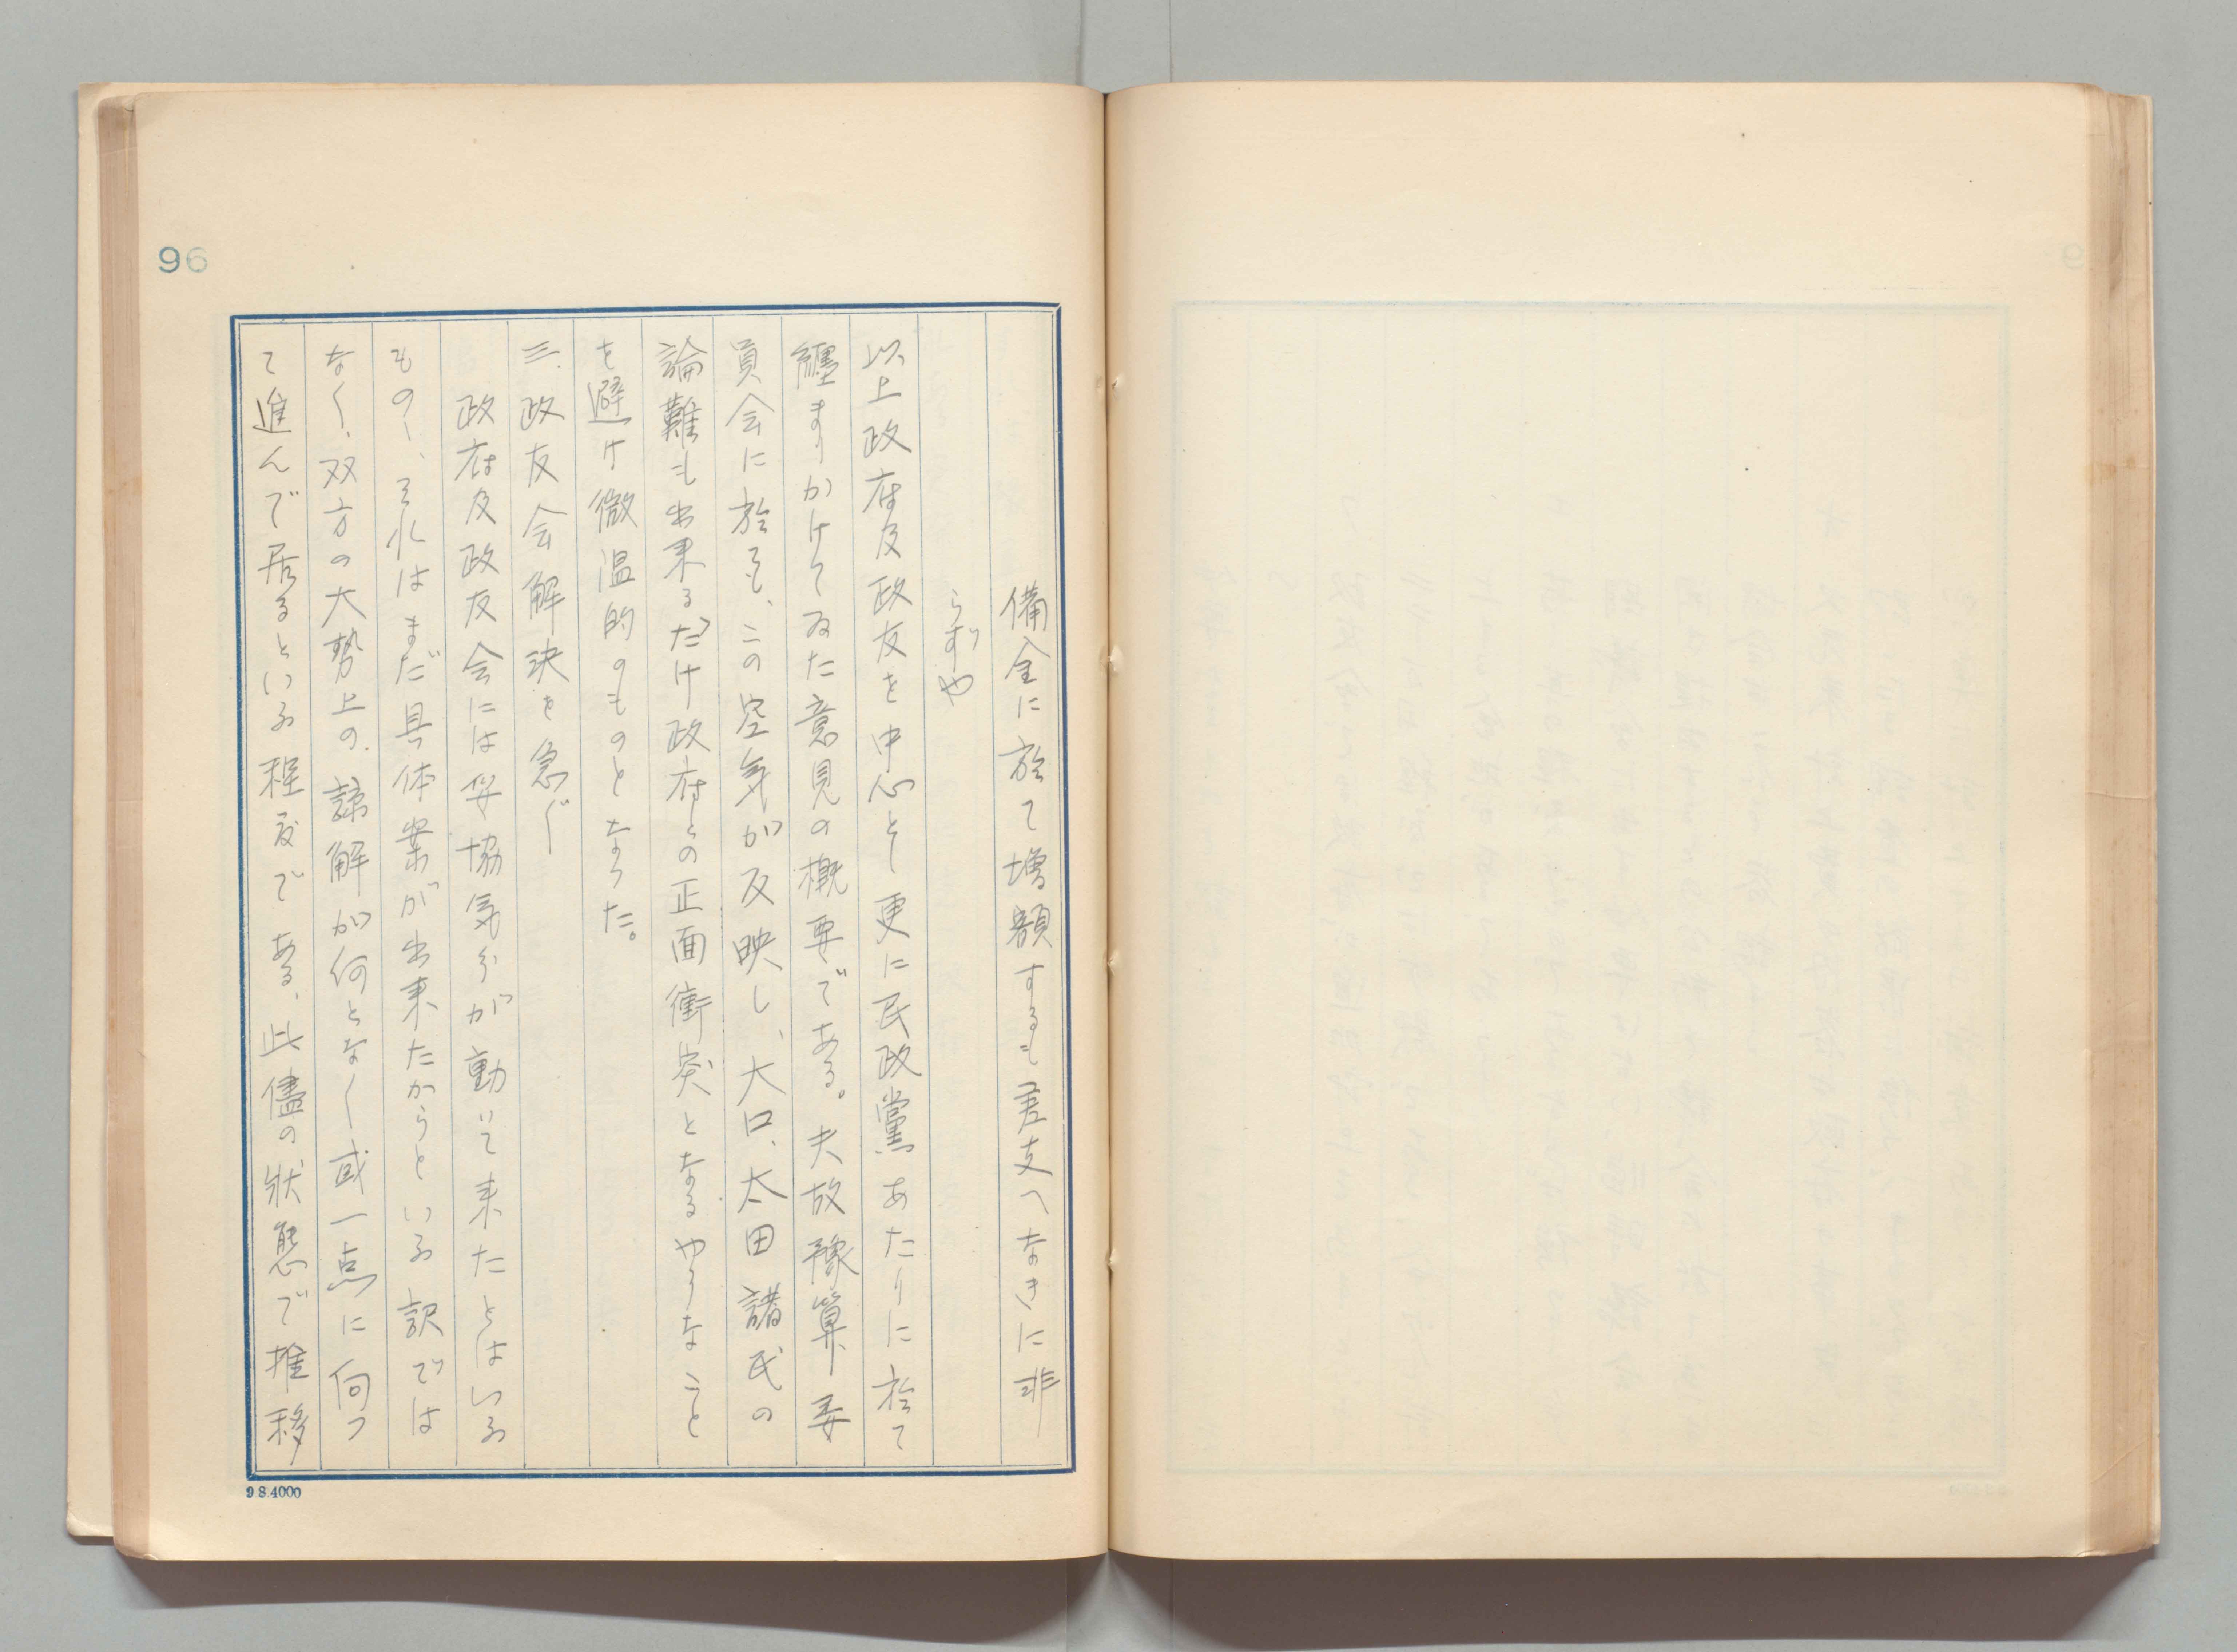 96
備金に於て増額するも差支へなきに非
らずや
以上政府及政友を中心とし更に民政黨あたりに於て
纒まりかけてゐた意見の概要である。夫故豫算委
員会に於ても、この空気が反映し、大口、太田諸氏の
論難も出来るだけ政府との正面衝突となるやうなこと
を避け微温的のものとなつた。
三、政友会解決を急ぐ
政府及政友会には妥協気分が動いて来たとはいふ
ものゝ、それはまだ具体案が出来たからといふ訳では
なく、双方の大勢上の諒解が何となく或一点に向つ
て進んで居るといふ程度である、此儘の状態で推移
9 8.4000